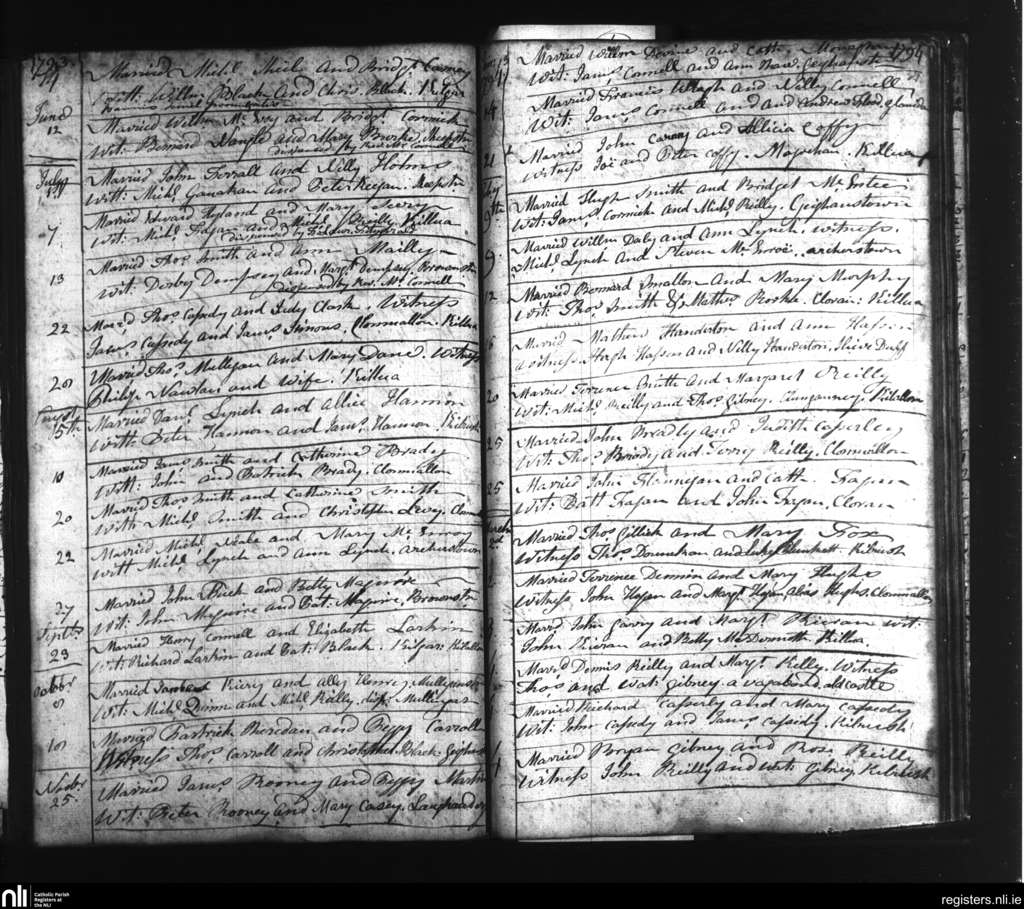 1793
Married Michl Miele and Bridgt
Witt: Willm Black and Chris. Black. Kilgar
June 12
Married Willm Mc Evy and Bridgt Cormick
Wit: Bernard Nangle and Mary Bourke,
dispensed by Rev. Mr. Connell
July
Married John Ferrall and Nilly Holms
Witt: Michl Ganahan and Peter Keegan.
7
Married Edward Hyland and Mary Seery
Wit: Michl Edgar and Michl Reilly Killua
dispensed by
13
Married Thos Smith and Ann Mailly
Wit: Derby Dempsey and Margt Dempsey, Brownstn
dispensed by Rev. Mr. Connell
22
Marrd Thos Casedy and Judy Clark. Witness
Jams Cassedy and Jams Clonmallon. Killua
28
Married Thos Mulligan and Mary Dane. Witness
Philip Nawlan and Wife. Killua
August 5th
Married Danl Lynch and Allice Hannon
With Peter Hannon and Jams Hannon Kilrush
10
Married Jams Smith and Catherine Brady
Witt: John and Patrick Brady, Clonmallon
20
Married Thos Smith and Catherine Smith
With Michl Smith and Christopher Levy,
22
Married Michl Neale and Mary Mc Enroy
Witt Michl Lynch and Ann Lynch, archerstown
27
Married John and Betty Maguire
Wit: John Maguire and Cat: Maguire, Brownstn
Septbr 29
Married Henry Connell and Elizabeth Larkin
Wit: Richard Larkin and Cat: Black. Kilgar
Octobr 8
Married Kiery and Ally
Wit: Michl Dunn and Michl Reilly,
10
Married Partrick Sheridan and Peggy Carroll
Witness Thos Carroll and Christopher Black
Novbr 25.
Married Jams Rooney and Peggy Martin
Wit: Peter Rooney and Mary Casey,
1794
Married Willm Devine and Cath. Monaghan
Wit: Jams Connell and Ann
14
Married Francis and Nilly Connell
Wit: Jams Connell and Andrew
21
Married John Carney and Allicia Coffy
Witness Joe and Peter Coffy. Killua
9th
Married Hugh Smith and Bridget Mc Entee
Wit: Jams Cormick and Michl Reilly. Geighanstown
9
Married Willm Daly and Ann Lynch, Witness.
Michl Lynch and Steven Mc Enroe. archerstown
12
Married Bernard Smallon and Mary Morphy
Wit: Thos Smith & Mathw Rorke. Cloran: Killua
Married Mathew Handerton and Ann Hassin
Witness Hugh Hassen and Nilly Handerton,
20
Married Terrence Smith and Margaret Reilly
Wit: Michl Reilly and Thos Gibney,
25
Married John Bready and Judith Caperley
Wit: Thos Briody and Terry Reilly. Clonmallon
25
Married John Flannegan and Cath. Fagan
Wit: Batt Fagan and John Fagan, Cloran
Married Thos Gillick and Mary Fox
Witness Thos Donnahan and Luke Plunkett. Kilrush
Married Terrence Dennin and Mary Hughs
Witness John and Margt alias Hughs. Clonmallon
Marrd John Garry and Margt Kieran Wit:
John Kieran and Betty McDermoth Killua
Marrd Dennis Reilly and Margt Kelly. Witness
Thos and Wat: Gibney a vagabond. old castle
Married Richard Casserly and Mary Cassedy
Wit: John Cassedy and Jams Cassidy, Kilrush
Married Bryan Gibney and Rose Reilly
Witness John Reilly and Wat: Gibney Kilrush
nli
Catholic Parish
Registers at
the NLI
registers.nli.ie